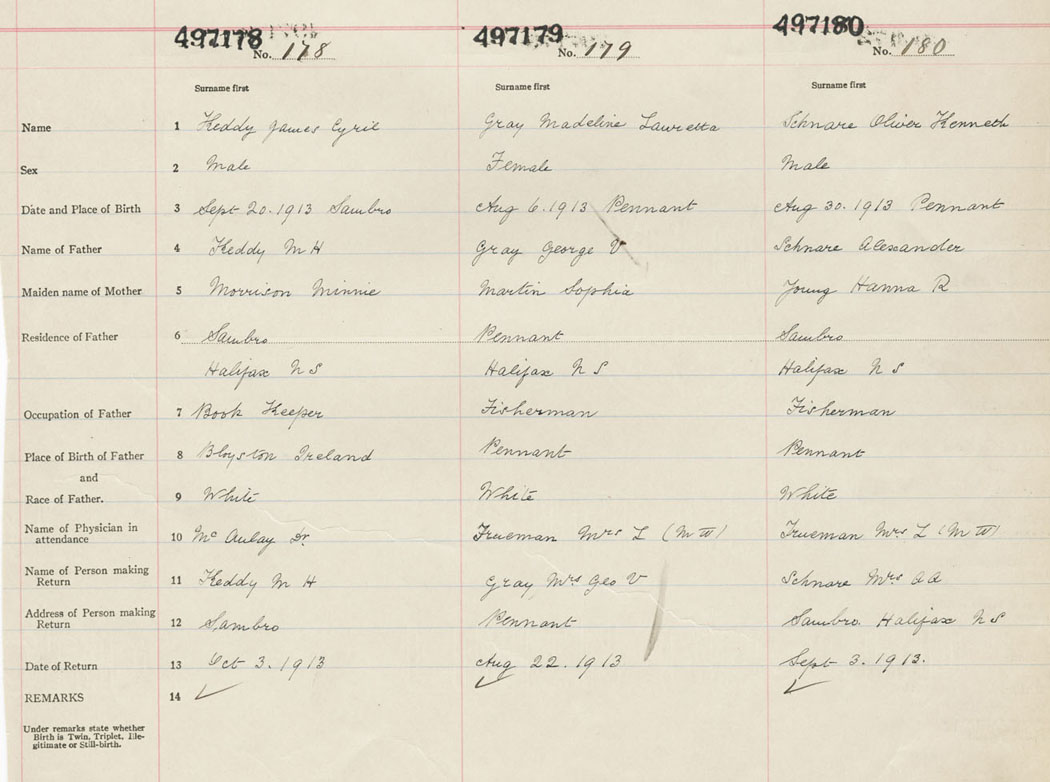 497178 497179 497180
No. 178 No. 179 No. 180
Surname first Surname first Surname first
Name 1 Keddy James Cyril Gray Madeline Lauretta Schnare Oliver Kenneth
Sex 2 Male Female Male
Date and Place of Birth 3 Sept 20. 1913 Sambro Aug 6. 1913 Pennant Aug 30. 1913 Pennant
Name of Father 4 Keddy M H Gray George V Schnare Alexander
Maiden name of Mother 5 Morrison Minnie Martin Sophia Young Hanna R
Residence of Father 6 Sambro Pennant Sambro
Halifax N S Halifax N S Halifax N S
Occupation of Father 7 Book Keeper Fisherman Fisherman
Place of Birth of Father 8 Bloyston Ireland Pennant Pennant
and
Race of Father. 9 White White White
Name of Physician in
attendance 10 Mc Aulay Dr. Trueman Mrs L (M W) Trueman Mrs L (M W)
Name of Person making
Return 11 Keddy M H Gray Mrs Geo V Schnare Mrs A A
Address of Person making
Return 12 Sambro Pennant Sambro. Halifax N S
Date of Return 13 Oct 3. 1913 Aug 22. 1913 Sept 3. 1913.
REMARKS 14 ✓ ✓ ✓
Under remarks state whether
Birth is Twin, Triplet, Ille-
gitimate or Still-birth.